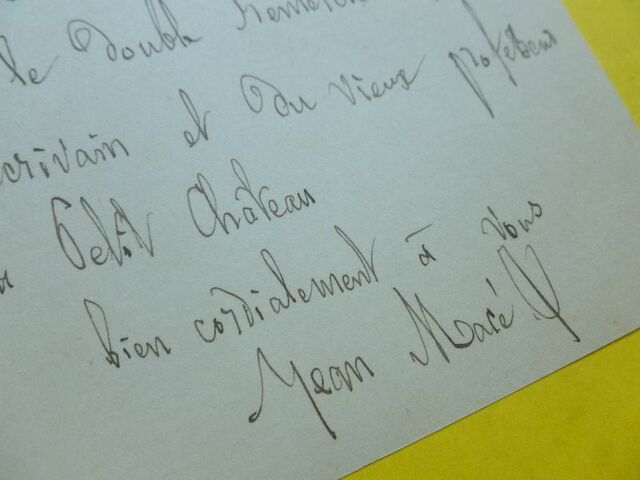 le double remerci
écrivain et du vieux professeur
Petit Château
bien cordialement à vous
Jean Macé